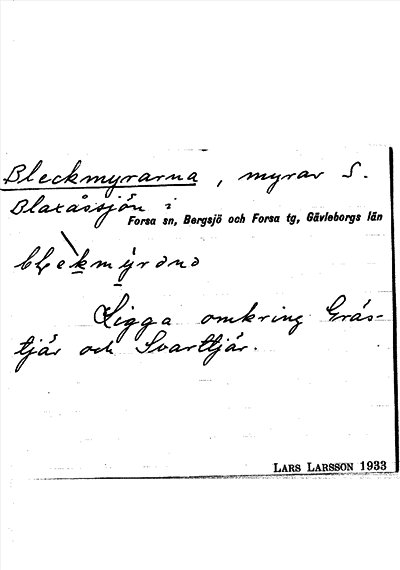 Bleckmyrarna, myrar S.
Blaxåssjön i
Forsa sn, Bergsjö och Forsa tg, Gävleborgs län
Ligga omkring Grås-
tjär och Svarttjär.
LARS LARSSON 1933